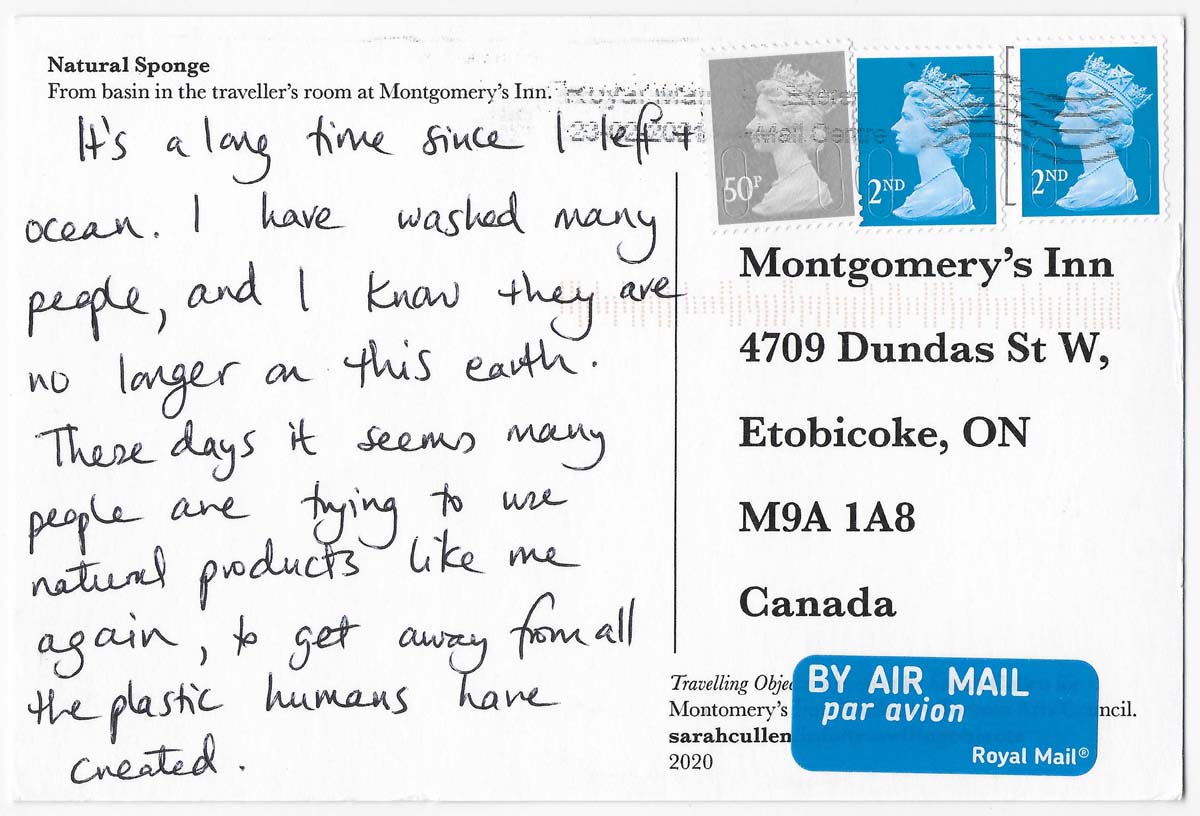 Natural Sponge
From basin in the traveller's room at Montgomery's Inn.
It's a long time since I left t
ocean. I have washed many
people, and I know they are
no longer on this earth.
These days it seems many
people are trying to use
natural products like me
again, to get away from all
the plastic humans have
created.
50P
2ND
2ND
Mail Centre
Montgomery's Inn
4709 Dundas St W,
Etobicoke, ON
M9A 1A8
Canada
Travelling Obje
Montomery's
ncil.
sarahcullen
2020
BY AIR MAIL
par avion
Royal Mail®